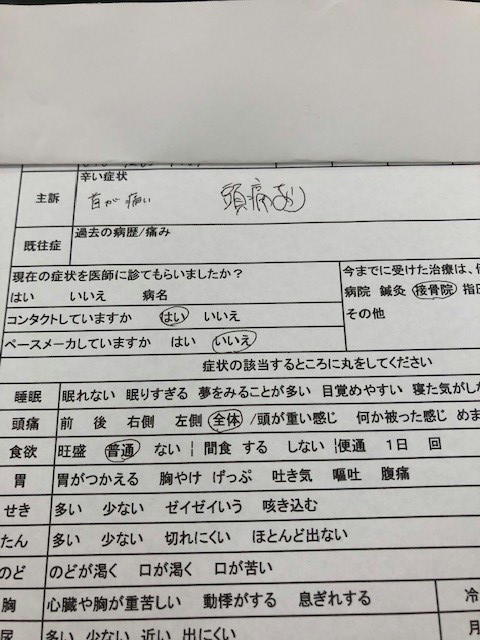 辛い症状
主訴 首が痛い 頭痛あり
過去の病歴/痛み
既往症
現在の症状を医師に診てもらいましたか? 今までに受けた治療は、
はい いいえ 病名 病院 鍼灸 接骨院 指
コンタクトしていますか はい いいえ その他
ペースメーカしていますか はい いいえ
症状の該当するところに丸をしてください
睡眠 眠れない 眠りすぎる 夢をみることが多い 目覚めやすい 寝た気がし
頭痛 前 後 右側 左側 全体 /頭が重い感じ 何か被った感じ めま
食欲 旺盛 普通 ない ¦ 間食 する しない ¦ 便通 1日 回
胃 胃がつかえる 胸やけ げっぷ 吐き気 嘔吐 腹痛
せき 多い 少ない ゼイゼイいう 咳き込む
たん 多い 少ない 切れにくい ほとんど出ない
のど のどが渇く 口が渇く 口が苦い
胸 心臓や胸が重苦しい 動悸がする 息ぎれする 冷
尿 多い 少ない 近い 出にくい 月